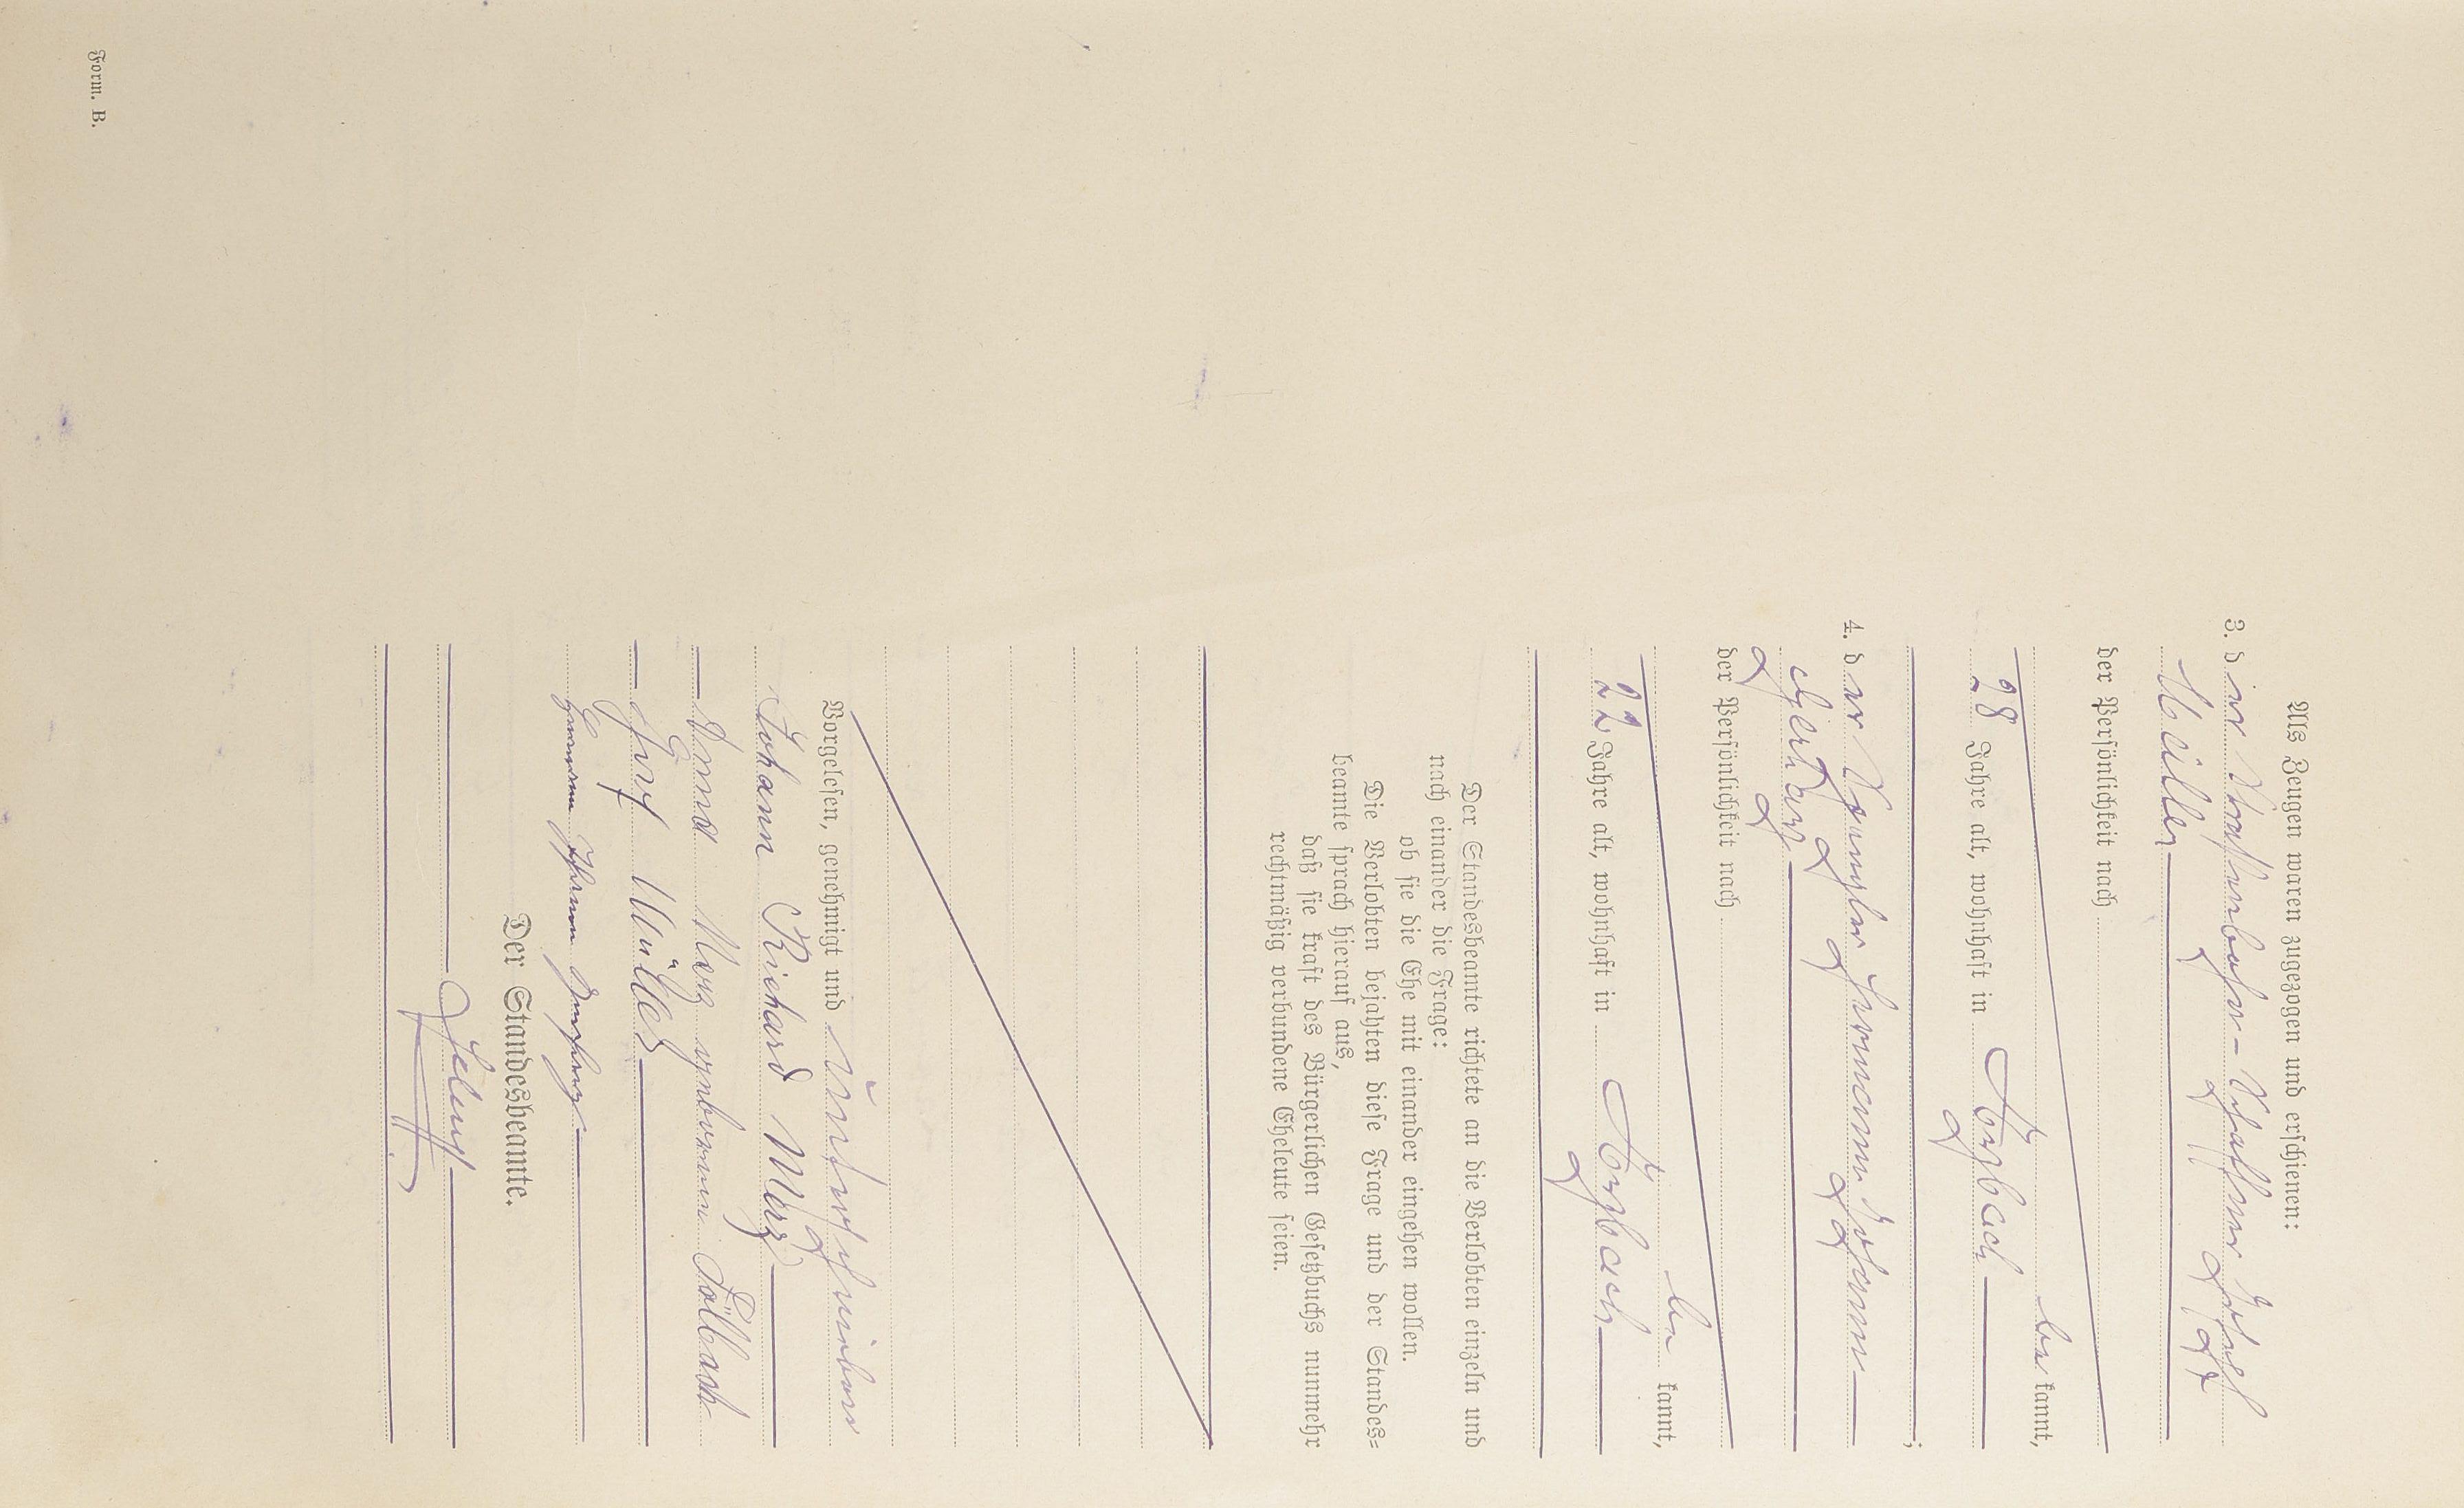 Als Zeugen waren zugezogen und erschienen:
3. der Straßenbahn-Schaffner Josef
Müller
der Persönlichkeit nach
be kannt,
28 Jahre alt, wohnhaft in Körzbach
;
4. der Hermann Johann
der Persönlichkeit nach
be kannt,
22 Jahre alt, wohnhaft in Körzbach
Der Standesbeamte richtete an die Verlobten einzeln und
nach einander die Frage:
ob sie die Ehe mit einander eingehen wollen.
Die Verlobten bejahten diese Frage und der Standes=
beamte sprach hierauf aus,
daß sie kraft des Bürgerlichen Gesetzbuchs nunmehr
rechtmäßig verbundene Eheleute seien.
Vorgelesen, genehmigt und unterschrieben
Johann Richard Merz
Anna Merz geborene Föllbach
Josef Müller
Hermann Johann
Der Standesbeamte.
Form. B.